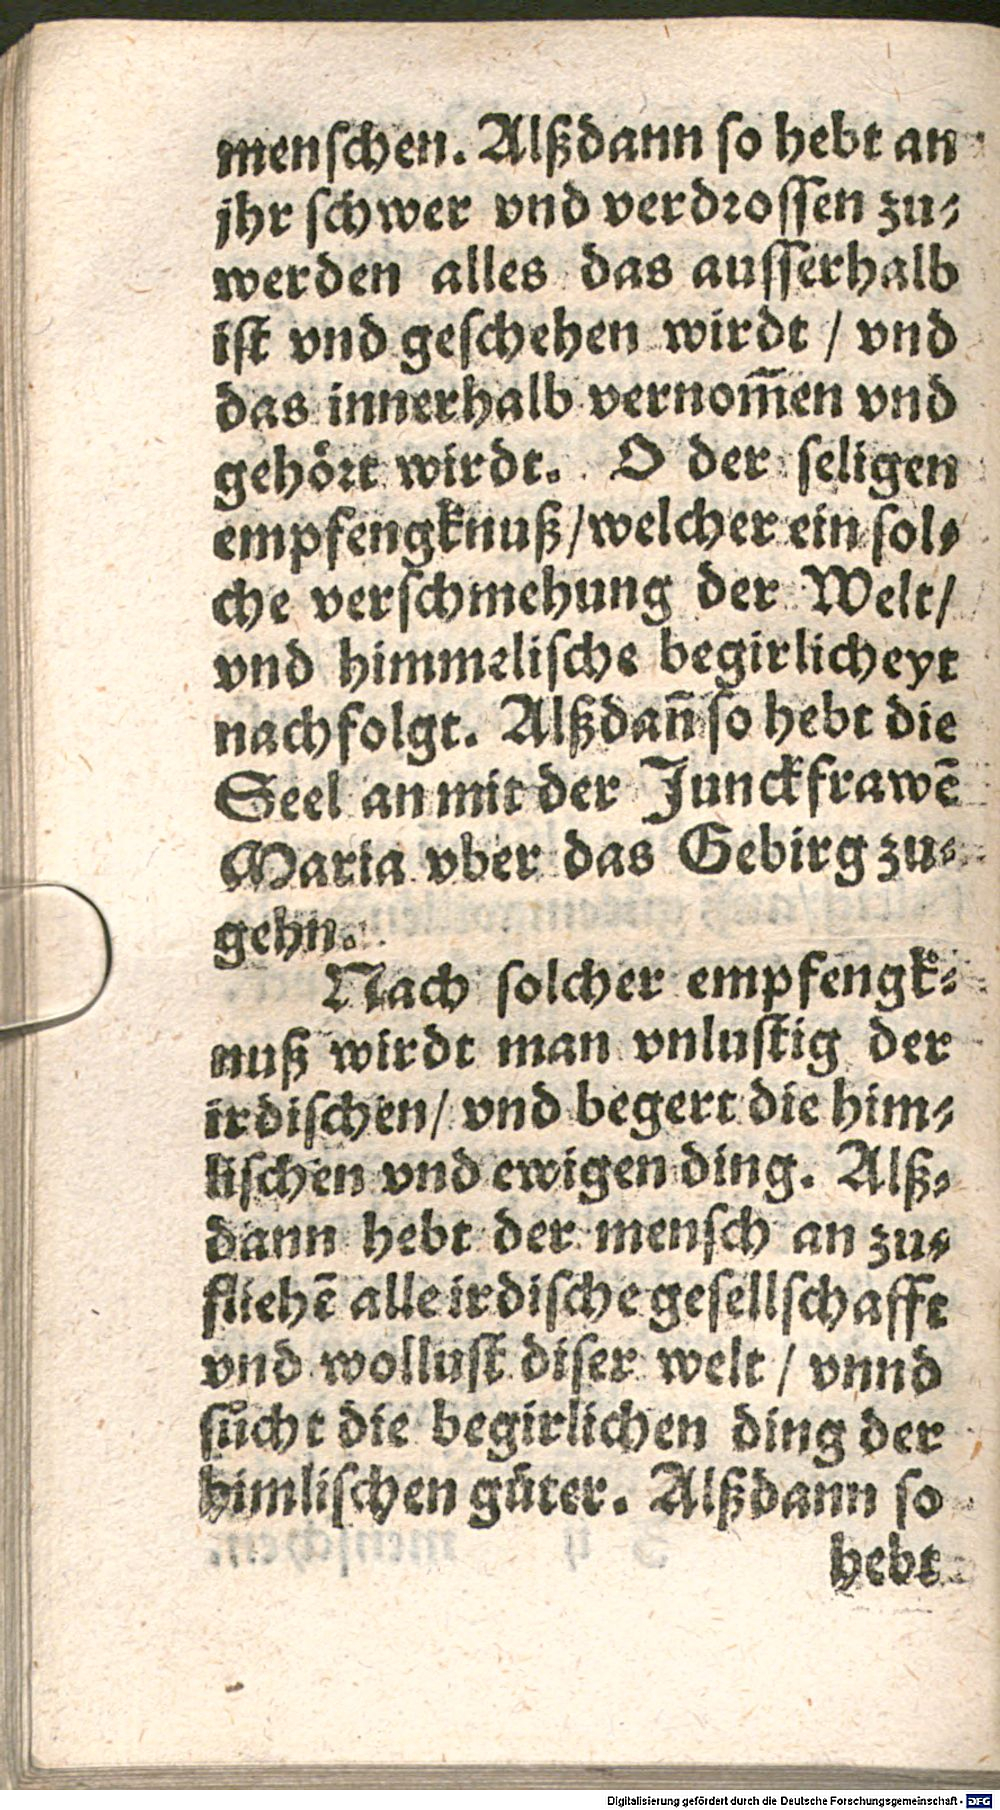 menschen. Alßdann so hebt an
jhr schwer vnd verdrossen zu-
werden alles das ausserhalb
ist vnd geschehen wirdt / vnd
das innerhalb vernom̃en vnd
gehört wirdt. O der seligen
empfengknuß / welcher ein sol-
che verschmehung der Welt /
vnd himmelische begirlicheyt
nachfolgt. Alßdañ so hebt die
Seel an mit der Junckfrawẽ
Maria vber das Gebirg zu-
gehn.
Nach solcher empfengk-
nuß wirdt man vnlustig der
irdischen / vnd begert die him-
lischen vnd ewigen ding. Alß-
dann hebt der mensch an zu-
fliehẽ alle irdische gesellschafft
vnd wollust diser welt / vnnd
sůcht die begirlichen ding der
himlischen gůter. Alßdann so
hebt
Digitalisierung gefördert durch die Deutsche Forschungsgemeinschaft - DFG